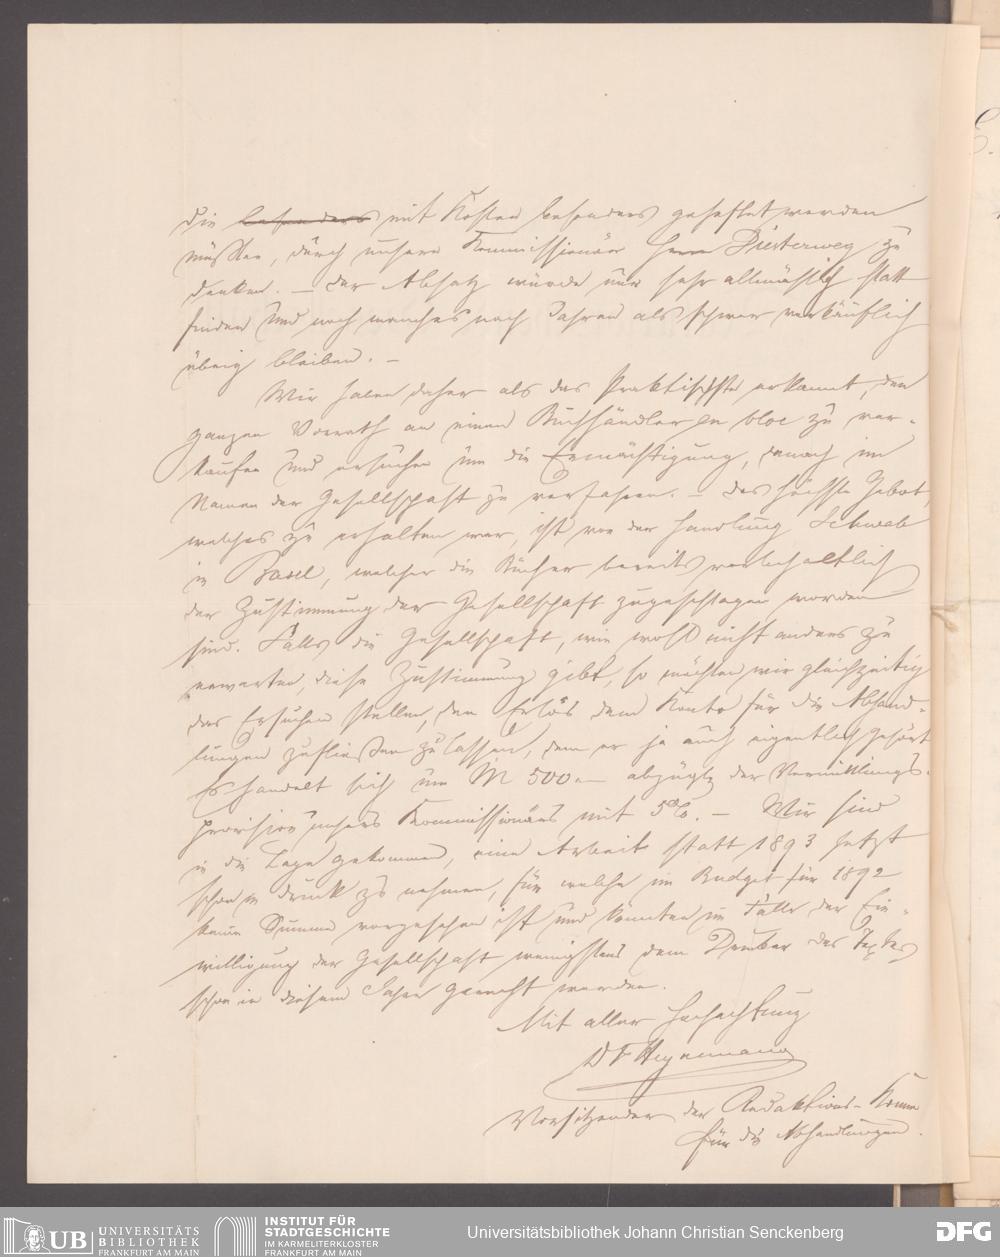 die besonders mit Kosten besonders geheftet werden
müßten, durch unsern Kommissionär Herrn Diesterweg zu
denken. – Der Absatz würde nur sehr allmählich statt
finden und noch manches nach Jahren als schwer verkäuflich
übrig bleiben. –
Wir haben daher als das Praktischste erkannt, den
ganzen Vorrath an einen Buchhändler en bloc zu ver-
kaufen und ersuchen um die Ermächtigung, danach im
Namen der Gesellschaft zu verfahren. – Das höchste Gebot,
welches zu erhalten war, ist von der Handlung Schwab
in Basel, welcher die Bücher bereits vorbehaltlich
der Zustimmung der Gesellschaft zugeschlagen worden
sind. Falls die Gesellschaft, wie wohl nicht anders zu
erwarten, diese Zustimmung gibt, so möchten wir gleichzeitig
das Ersuchen stellen, den Erlös dem Konto für die Abhand-
lungen zufließen zu lassen, dem er ja auch eigentlich gehört
Es handelt sich um M 500.– abzügl. der Vermittlungs-
provision unsers Kommissionärs mit 5%. – Wir sind
in die Lage gekommen, eine Arbeit statt 1893 jetzt
schon in Druck zu nehmen, für welche im Budget für 1892
keine Summe vorgesehen ist und könnten im Falle der Ein-
willigung der Gesellschaft wenigstens dem Drucker des Textes
schon in diesem Jahre gerecht werden.
Mit aller Hochachtung
D F Heynemann
Vorsitzender der Redaktions-Komm
für die Abhandlungen.
UB UNIVERSITÄTS
BIBLIOTHEK
FRANKFURT AM MAIN
INSTITUT FÜR
STADTGESCHICHTE
IM KARMELITERKLOSTER
FRANKFURT AM MAIN
Universitätsbibliothek Johann Christian Senckenberg
DFG